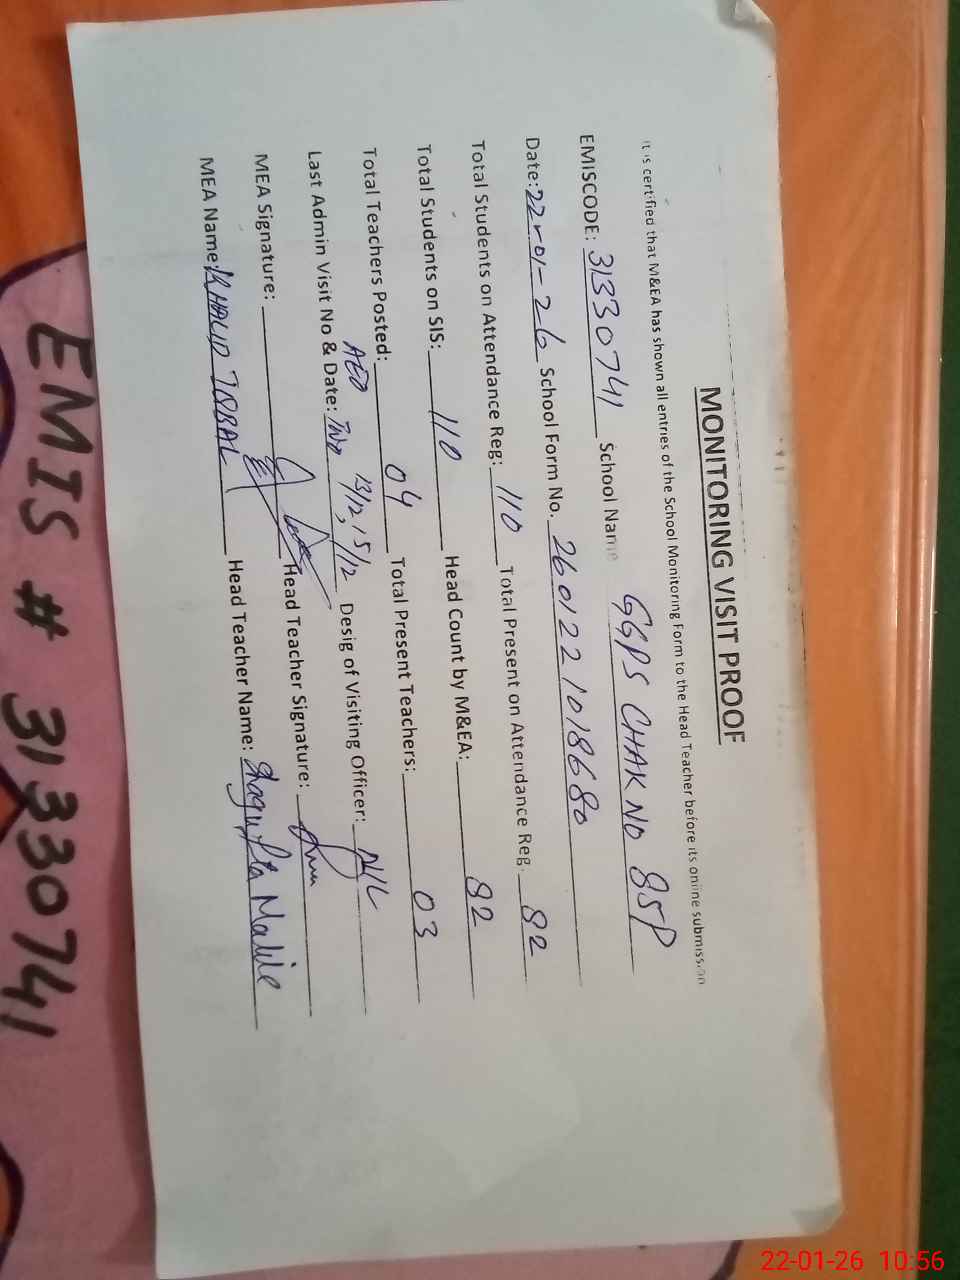 MONITORING VISIT PROOF
It is certified that M&EA has shown all entries of the School Monitoring Form to the Head Teacher before its online submission
EMISCODE: 31330741 School Name GGPS CHAK NO 85P
Date: 22-01-26 School Form No. 260122101868​0
Total Students on Attendance Reg: 110 Total Present on Attendance Reg. 82
Total Students on SIS: 110 Head Count by M&EA: 82
Total Teachers Posted: 04 Total Present Teachers: 03
AEO
Last Admin Visit No & Date: Two 13/12, 15/12 Desig of Visiting Officer: NIL
MEA Signature: Head Teacher Signature:
MEA Name: KHALID IQBAL Head Teacher Name: Shagufta
EMIS # 31330741
22-01-26 10:56